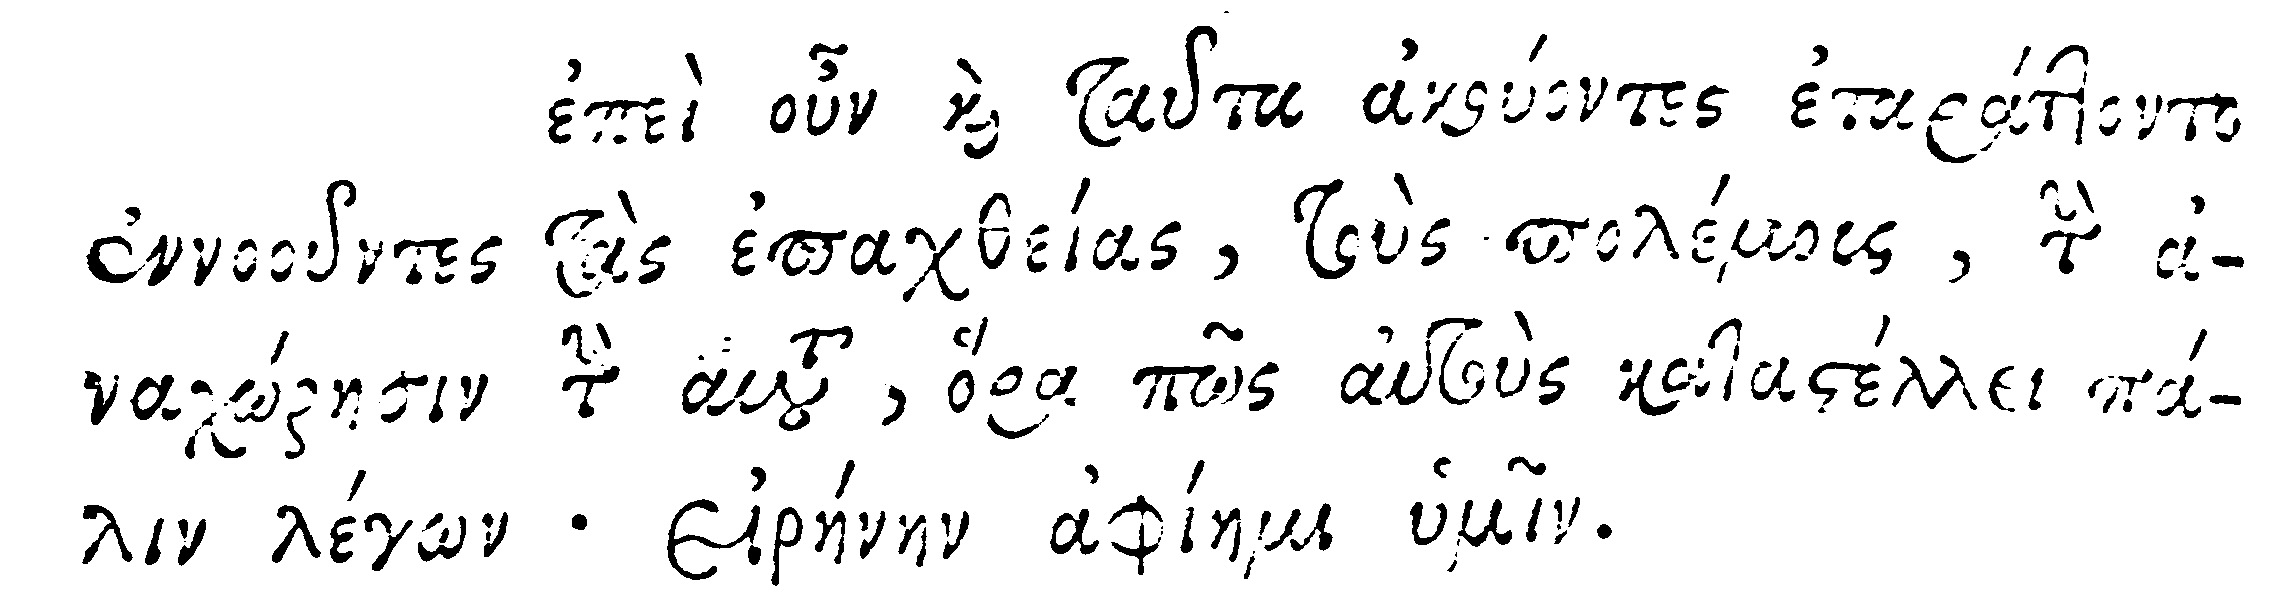 ἐπεὶ οὖν καὶ ταῦτα ἀκούοντες ἐταράττοντο
ἐννοοῦντες τὰς ἐπαχθείας, τοὺς πολέμους, τὴν ἀ-
ναχώρησιν τὴν αὐτοῦ, ὅρα πῶς αὐτοὺς καταστέλλει πά-
λιν λέγων · εἰρήνην ἀφίημι ὑμῖν.